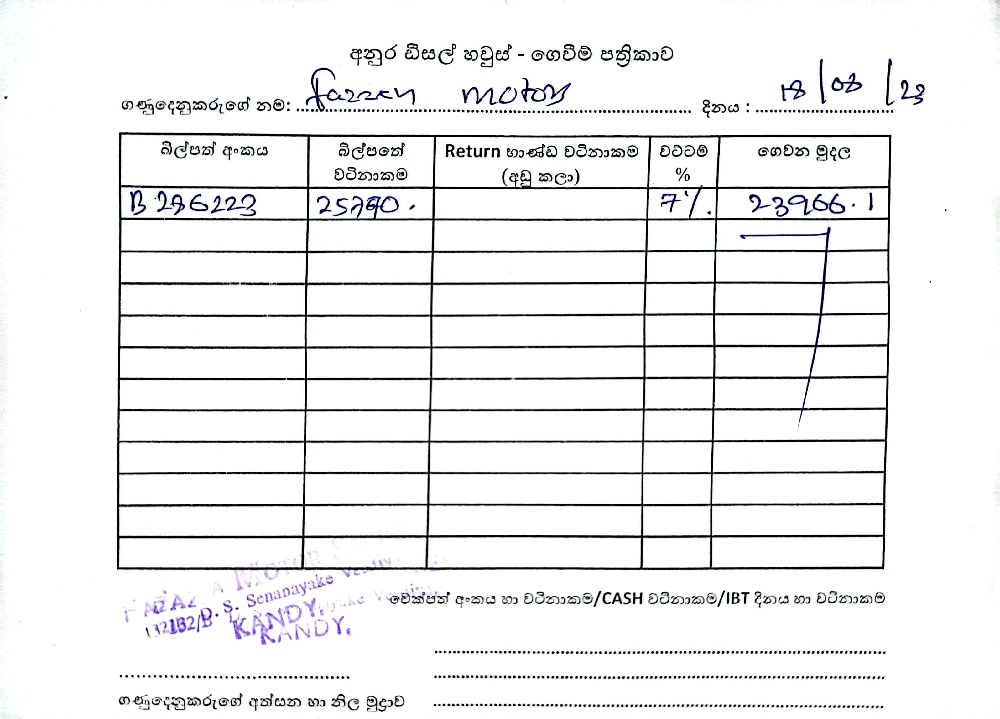 අනුර ඩීසල් හවුස් - ගෙවීම් පත්‍රිකාව
ගණුදෙනුකරුගේ නම: Fazzen Motors දිනය : 18/08/23
බිල්පත් අංකය බිල්පතේ වටිනාකම Return භාණ්ඩ වටිනාකම (අඩු කලා) වට්ටම් % ගෙවන මුදල
B 276223 25770. 7%. 23966.1
D. S. Senanayake
KANDY.
KANDY.
චෙක්පත් අංකය හා වටිනාකම/CASH වටිනාකම/IBT දිනය හා වටිනාකම
ගණුදෙනුකරුගේ අත්සන හා නිල මුද්‍රාව